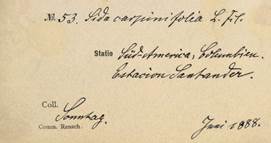 № 53. Sida carpinifolia L. f.
Statio Süd-America, Columbien.
Estacion Santander.
Coll. Sonntag.
Comm. Rensch.
Juni 1888.